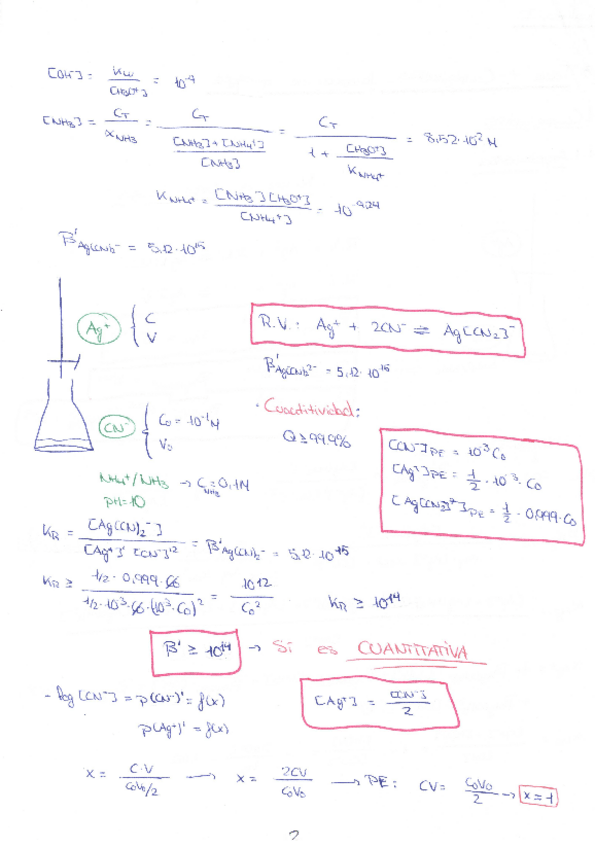 [OH⁻] = Kw / [H₃O⁺] = 10⁻⁴
[NH₃] = C_T / α_NH₃ = C_T / (([NH₃] + [NH₄⁺]) / [NH₃]) = C_T / (1 + [H₃O⁺] / K_NH₄⁺) = 8,52·10⁻² M
K_NH₄⁺ = [NH₃][H₃O⁺] / [NH₄⁺] = 10⁻⁹·²⁴
β'Ag(CN)₂⁻ = 5,12·10¹⁵
Ag⁺ { C
V
R.V.: Ag⁺ + 2CN⁻ ⇌ Ag[CN₂]⁻
β'Ag(CN)₂⁻ = 5,12·10¹⁵
CN⁻ { C₀ = 10⁻¹ M
V₀
· Cuantitividad:
Q ≥ 99.9%
[CN⁻]PE = 10⁻³ C₀
[Ag⁺]PE = 1/2 · 10⁻³ · C₀
[Ag(CN)₂⁻]PE = 1/2 · 0,999 · C₀
NH₄⁺/NH₃ → C_NH₃ = 0,1M
pH=10
K_R = [Ag(CN)₂⁻] / [Ag⁺]' [CN⁻]'² = β'Ag(CN)₂⁻ = 5,12·10¹⁵
K_R ≥ 1/2 · 0,999 · C₀ / 1/2 · 10⁻³ · C₀ · (10⁻³ · C₀)² = 10¹² / C₀² K_R ≥ 10¹⁴
β' ≥ 10¹⁴ → Sí es CUANTITATIVA
- log [CN⁻] = p(CN⁻)' = f(x)
p(Ag⁺)' = f(x)
[Ag⁺] = [CN⁻] / 2
x = C·V / C₀V₀/2 → x = 2CV / C₀V₀ → PE: CV = C₀V₀ / 2 → x = 1
2